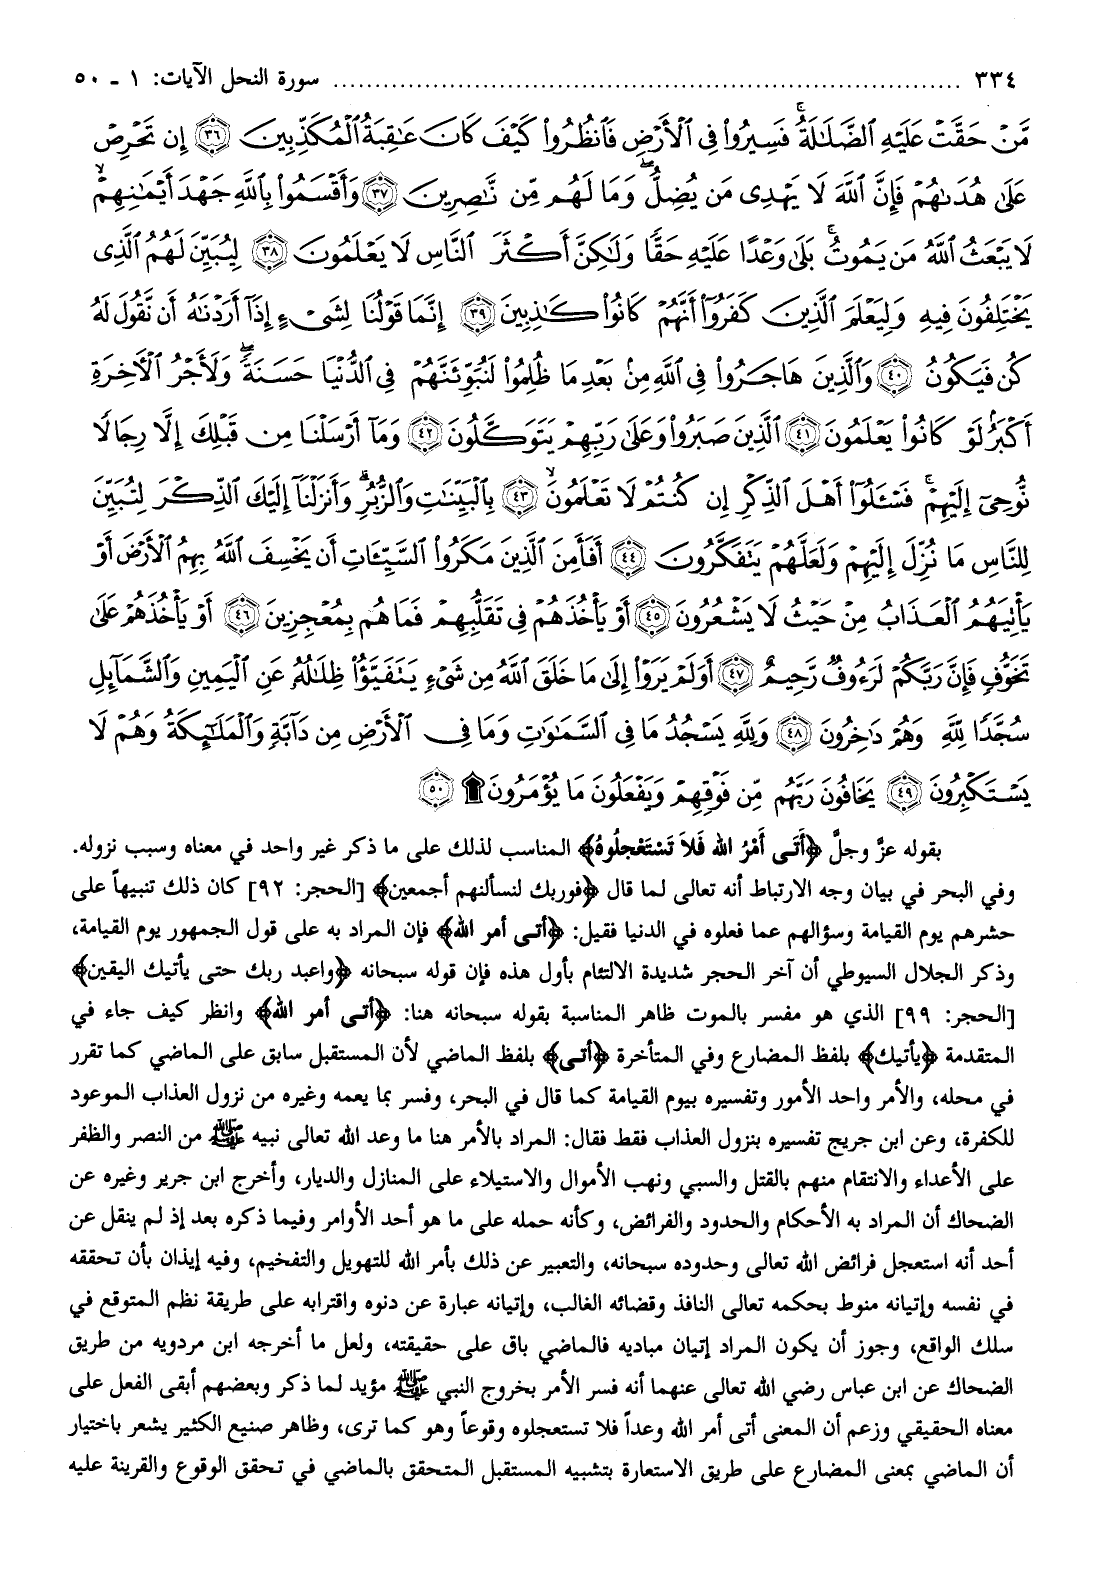 ٣٣٤ ........................................ سورة النحل الآيات: ١ ـ ٥٠
مَّنْ حَقَّتْ عَلَيْهِ ٱلضَّلَـٰلَةُ ۚ فَسِيرُوا۟ فِى ٱلْأَرْضِ فَٱنظُرُوا۟ كَيْفَ كَانَ عَـٰقِبَةُ ٱلْمُكَذِّبِينَ ﴿٣٦﴾ إِن تَحْرِصْ
عَلَىٰ هُدَىٰهُمْ فَإِنَّ ٱللَّهَ لَا يَهْدِى مَن يُضِلُّ ۖ وَمَا لَهُم مِّن نَّـٰصِرِينَ ﴿٣٧﴾ وَأَقْسَمُوا۟ بِٱللَّهِ جَهْدَ أَيْمَـٰنِهِمْ ۙ
لَا يَبْعَثُ ٱللَّهُ مَن يَمُوتُ ۚ بَلَىٰ وَعْدًا عَلَيْهِ حَقًّا وَلَـٰكِنَّ أَكْثَرَ ٱلنَّاسِ لَا يَعْلَمُونَ ﴿٣٨﴾ لِيُبَيِّنَ لَهُمُ ٱلَّذِى
يَخْتَلِفُونَ فِيهِ وَلِيَعْلَمَ ٱلَّذِينَ كَفَرُوٓا۟ أَنَّهُمْ كَانُوا۟ كَـٰذِبِينَ ﴿٣٩﴾ إِنَّمَا قَوْلُنَا لِشَىْءٍ إِذَآ أَرَدْنَـٰهُ أَن نَّقُولَ لَهُۥ
كُن فَيَكُونُ ﴿٤٠﴾ وَٱلَّذِينَ هَاجَرُوا۟ فِى ٱللَّهِ مِنۢ بَعْدِ مَا ظُلِمُوا۟ لَنُبَوِّئَنَّهُمْ فِى ٱلدُّنْيَا حَسَنَةً ۖ وَلَأَجْرُ ٱلْـَٔاخِرَةِ
أَكْبَرُ ۚ لَوْ كَانُوا۟ يَعْلَمُونَ ﴿٤١﴾ ٱلَّذِينَ صَبَرُوا۟ وَعَلَىٰ رَبِّهِمْ يَتَوَكَّلُونَ ﴿٤٢﴾ وَمَآ أَرْسَلْنَا مِن قَبْلِكَ إِلَّا رِجَالًا
نُّوحِىٓ إِلَيْهِمْ ۚ فَسْـَٔلُوٓا۟ أَهْلَ ٱلذِّكْرِ إِن كُنتُمْ لَا تَعْلَمُونَ ۙ ﴿٤٣﴾ بِٱلْبَيِّنَـٰتِ وَٱلزُّبُرِ ۗ وَأَنزَلْنَآ إِلَيْكَ ٱلذِّكْرَ لِتُبَيِّنَ
لِلنَّاسِ مَا نُزِّلَ إِلَيْهِمْ وَلَعَلَّهُمْ يَتَفَكَّرُونَ ﴿٤٤﴾ أَفَأَمِنَ ٱلَّذِينَ مَكَرُوا۟ ٱلسَّيِّـَٔاتِ أَن يَخْسِفَ ٱللَّهُ بِهِمُ ٱلْأَرْضَ أَوْ
يَأْتِيَهُمُ ٱلْعَذَابُ مِنْ حَيْثُ لَا يَشْعُرُونَ ﴿٤٥﴾ أَوْ يَأْخُذَهُمْ فِى تَقَلُّبِهِمْ فَمَا هُم بِمُعْجِزِينَ ﴿٤٦﴾ أَوْ يَأْخُذَهُمْ عَلَىٰ
تَخَوُّفٍ فَإِنَّ رَبَّكُمْ لَرَءُوفٌ رَّحِيمٌ ﴿٤٧﴾ أَوَلَمْ يَرَوْا۟ إِلَىٰ مَا خَلَقَ ٱللَّهُ مِن شَىْءٍ يَتَفَيَّؤُا۟ ظِلَـٰلُهُۥ عَنِ ٱلْيَمِينِ وَٱلشَّمَآئِلِ
سُجَّدًا لِّلَّهِ وَهُمْ دَٰخِرُونَ ﴿٤٨﴾ وَلِلَّهِ يَسْجُدُ مَا فِى ٱلسَّمَـٰوَٰتِ وَمَا فِى ٱلْأَرْضِ مِن دَآبَّةٍ وَٱلْمَلَـٰٓئِكَةُ وَهُمْ لَا
يَسْتَكْبِرُونَ ﴿٤٩﴾ يَخَافُونَ رَبَّهُم مِّن فَوْقِهِمْ وَيَفْعَلُونَ مَا يُؤْمَرُونَ ۩ ﴿٥٠﴾
بقوله عزَّ وجلَّ ﴿أَتَى أَمْرُ الله فَلاَ تَسْتَعْجِلُوهُ﴾ المناسب لذلك على ما ذكر غير واحد في معناه وسبب نزوله.
وفي البحر في بيان وجه الارتباط أنه تعالى لما قال ﴿فوربك لنسألنهم أجمعين﴾ [الحجر: ٩٢] كان ذلك تنبيهاً على
حشرهم يوم القيامة وسؤالهم عما فعلوه في الدنيا فقيل: ﴿أتى أمر الله﴾ فإن المراد به على قول الجمهور يوم القيامة،
وذكر الجلال السيوطي أن آخر الحجر شديدة الالتئام بأول هذه فإن قوله سبحانه ﴿واعبد ربك حتى يأتيك اليقين﴾
[الحجر: ٩٩] الذي هو مفسر بالموت ظاهر المناسبة بقوله سبحانه هنا: ﴿أتى أمر الله﴾ وانظر كيف جاء في
المتقدمة ﴿يأتيك﴾ بلفظ المضارع وفي المتأخرة ﴿أتى﴾ بلفظ الماضي لأن المستقبل سابق على الماضي كما تقرر
في محله، والأمر واحد الأمور وتفسيره بيوم القيامة كما قال في البحر، وفسر بما يعمه وغيره من نزول العذاب الموعود
للكفرة، وعن ابن جريج تفسيره بنزول العذاب فقط فقال: المراد بالأمر هنا ما وعد الله تعالى نبيه ﷺ من النصر والظفر
على الأعداء والانتقام منهم بالقتل والسبي ونهب الأموال والاستيلاء على المنازل والديار، وأخرج ابن جرير وغيره عن
الضحاك أن المراد به الأحكام والحدود والفرائض، وكأنه حمله على ما هو أحد الأوامر وفيما ذكره بعد إذ لم ينقل عن
أحد أنه استعجل فرائض الله تعالى وحدوده سبحانه، والتعبير عن ذلك بأمر الله للتهويل والتفخيم، وفيه إيذان بأن تحققه
في نفسه وإتيانه منوط بحكمه تعالى النافذ وقضائه الغالب، وإتيانه عبارة عن دنوه واقترابه على طريقة نظم المتوقع في
سلك الواقع، وجوز أن يكون المراد إتيان مباديه فالماضي باق على حقيقته، ولعل ما أخرجه ابن مردويه من طريق
الضحاك عن ابن عباس رضي الله تعالى عنهما أنه فسر الأمر بخروج النبي ﷺ مؤيد لما ذكر وبعضهم أبقى الفعل على
معناه الحقيقي وزعم أن المعنى أتى أمر الله وعداً فلا تستعجلوه وقوعاً وهو كما ترى، وظاهر صنيع الكثير يشعر باختيار
أن الماضي بمعنى المضارع على طريق الاستعارة بتشبيه المستقبل المتحقق بالماضي في تحقق الوقوع والقرينة عليه